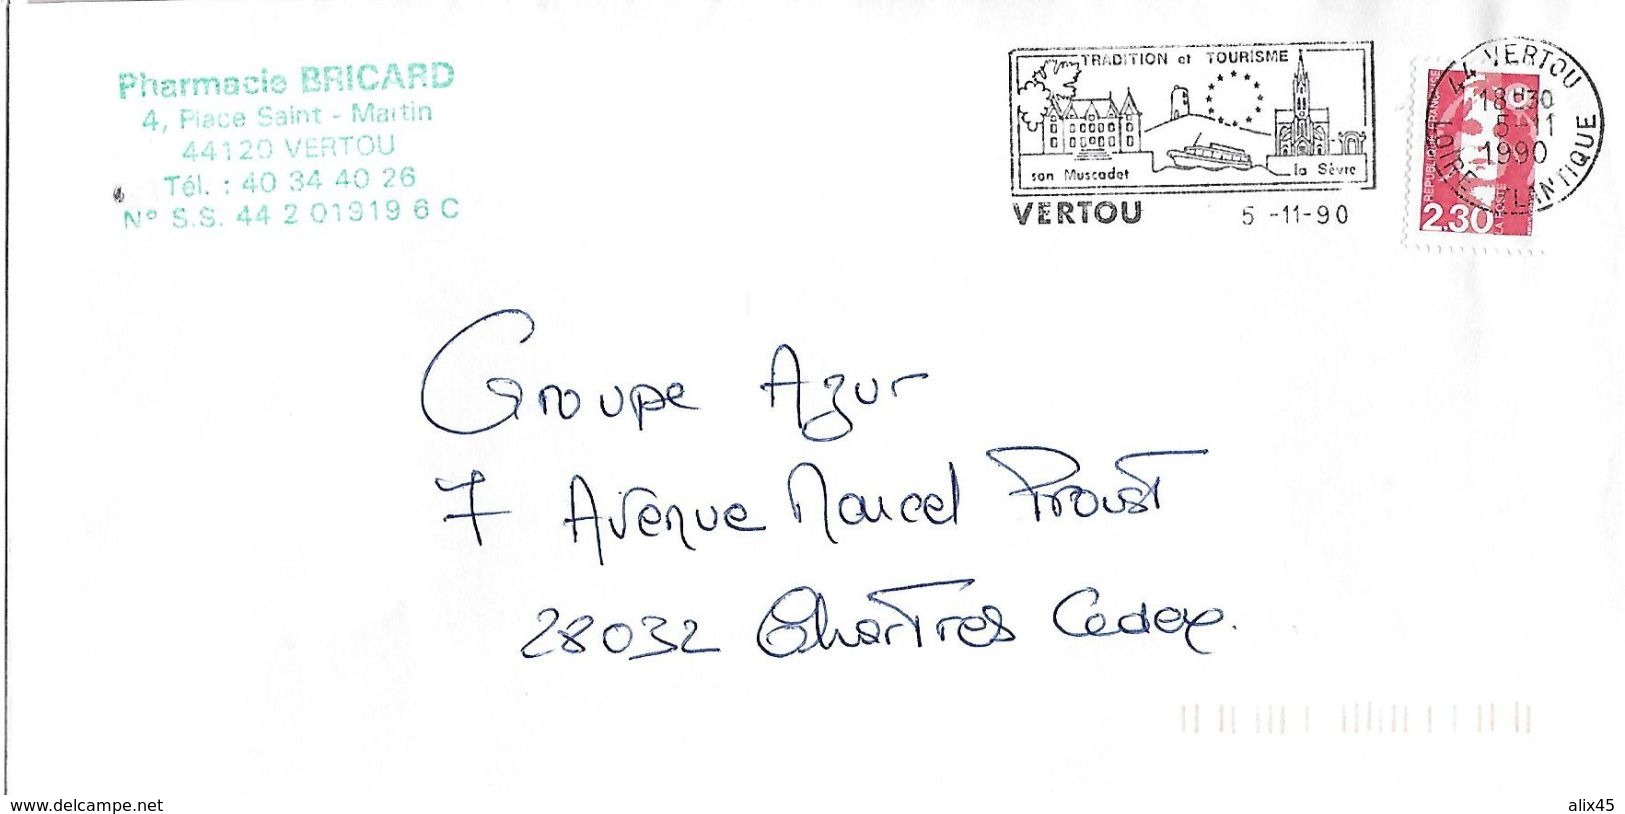 Pharmacie BRICARD
4, Place Saint - Martin
44120 VERTOU
Tél. : 40 34 40 26
N° S.S. 44 2 01919 6 C
TRADITION et TOURISME
son Muscadet
la Sèvre
VERTOU
5 -11-90
44 VERTOU
18H30
5-11
1990
LOIRE ATLANTIQUE
REPUBLIQUE FRANÇAISE
2.30
LA POSTE
Groupe Azur
7 Avenue Marcel Proust
28032 Chartres Cedex.
www.delcampe.net
alix45